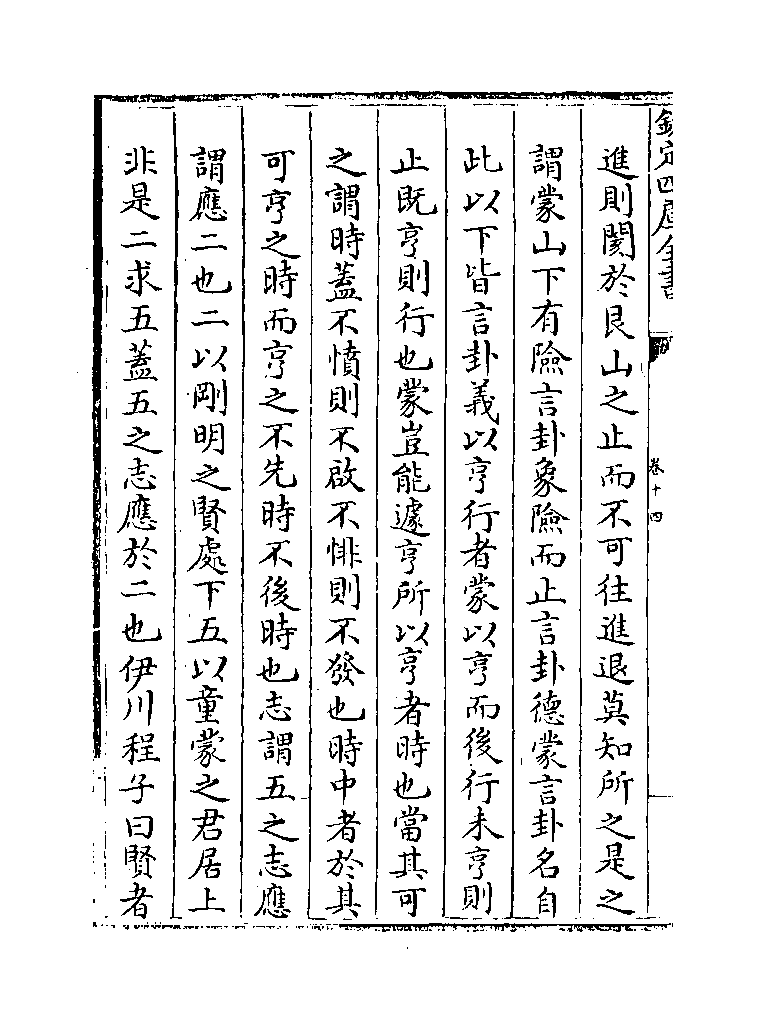 欽定四庫全書
卷十四
進則閡於艮山之止而不可往進退莫知所之是之
謂蒙山下有險言卦象險而止言卦德蒙言卦名自
此以下皆言卦義以亨行者蒙以亨而後行未亨則
止既亨則行也蒙豈能遽亨所以亨者時也當其可
之謂時蓋不憤則不啟不悱則不發也時中者於其
可亨之時而亨之不先時不後時也志謂五之志應
謂應二也二以剛明之賢處下五以童蒙之君居上
非是二求五蓋五之志應於二也伊川程子曰賢者